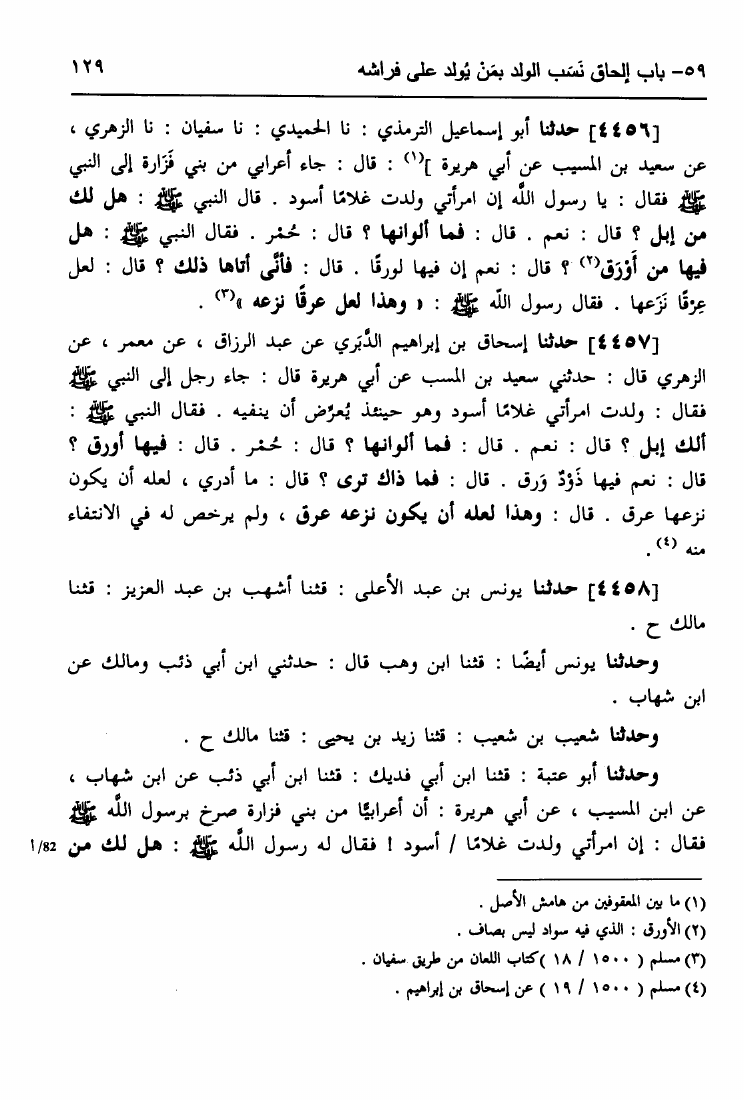 ٥٩- باب إلحاق نَسَب الولد بمَنْ يُولد على فراشه ١٢٩
[٤٤٥٦] حدثنا أبو إسماعيل الترمذي : نا الحميدي : نا سفيان : نا الزهري ،
عن سعيد بن المسيب عن أبي هريرة ](١) : قال : جاء أعرابي من بني فَزَارة إلى النبي
ﷺ فقال : يا رسول اللَّه إن امرأتي ولدت غلامًا أسود . قال النبي ﷺ : هل لك
من إبل ؟ قال : نعم . قال : فما ألوانها ؟ قال : حُمْر . فقال النبي ﷺ : هل
فيها من أَوْرَق(٢) ؟ قال : نعم إن فيها لورقًا . قال : فأنَّى أتاها ذلك ؟ قال : لعل
عِرْقًا نَزَعها . فقال رسول اللَّه ﷺ : « وهذا لعل عرقًا نزعه »(٣) .
[٤٤٥٧] حدثنا إسحاق بن إبراهيم الدَّبَري عن عبد الرزاق ، عن معمر ، عن
الزهري قال : حدثني سعيد بن المسب عن أبي هريرة قال : جاء رجل إلى النبي ﷺ
فقال : ولدت امرأتي غلامًا أسود وهو حينئذ يُعرِّض أن ينفيه . فقال النبي ﷺ :
ألك إبل ؟ قال : نعم . قال : فما ألوانها ؟ قال : حُمْر . قال : فيها أورق ؟
قال : نعم فيها ذَوْدٌ وَرق . قال : فما ذاك ترى ؟ قال : ما أدري ، لعله أن يكون
نزعها عرق . قال : وهذا لعله أن يكون نزعه عرق ، ولم يرخص له في الانتفاء
منه (٤) .
[٤٤٥٨] حدثنا يونس بن عبد الأعلى : قثنا أشهب بن عبد العزيز : قثنا
مالك ح .
وحدثنا يونس أيضًا : قثنا ابن وهب قال : حدثني ابن أبي ذئب ومالك عن
ابن شهاب .
وحدثنا شعيب بن شعيب : قثنا زيد بن يحيى : قثنا مالك ح .
وحدثنا أبو عتبة : قثنا ابن أبي فديك : قثنا ابن أبي ذئب عن ابن شهاب ،
عن ابن المسيب ، عن أبي هريرة : أن أعرابيًّا من بني فزارة صرخ برسول اللَّه ﷺ
فقال : إن امرأتي ولدت غلامًا / أسود ! فقال له رسول اللَّه ﷺ : هل لك من 82/أ
(١) ما بين المعقوفين من هامش الأصل .
(٢) الأورق : الذي فيه سواد ليس بصاف .
(٣) مسلم ( ١٥٠٠ / ١٨ )كتاب اللعان من طريق سفيان .
(٤) مسلم ( ١٥٠٠ / ١٩ ) عن إسحاق بن إبراهيم .